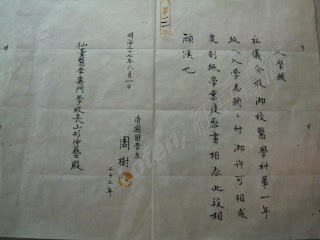 入學願
私儀今般御校醫學科第一年
級ヘ入學志願ニ付御許可相成
度別紙學業履歴書相添此段相
願候也
明治三十七年六月一日
清國留學生
周樹人
二十二年
仙臺醫學專門學校長山形仲藝殿